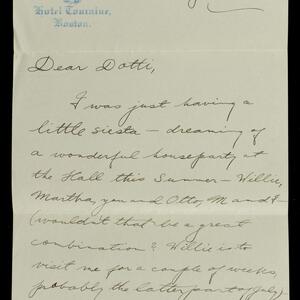 Hotel Touraine,
Boston.
Dear Dotti,
I was just having a
little siesta – dreaming of
a wonderful houseparty at
the Hall this Summer – Willie,
Martha, you and Otto, M and I –
(wouldn't that be a great
combination? Willie is to
visit me for a couple of weeks,
probably the latter part of July)